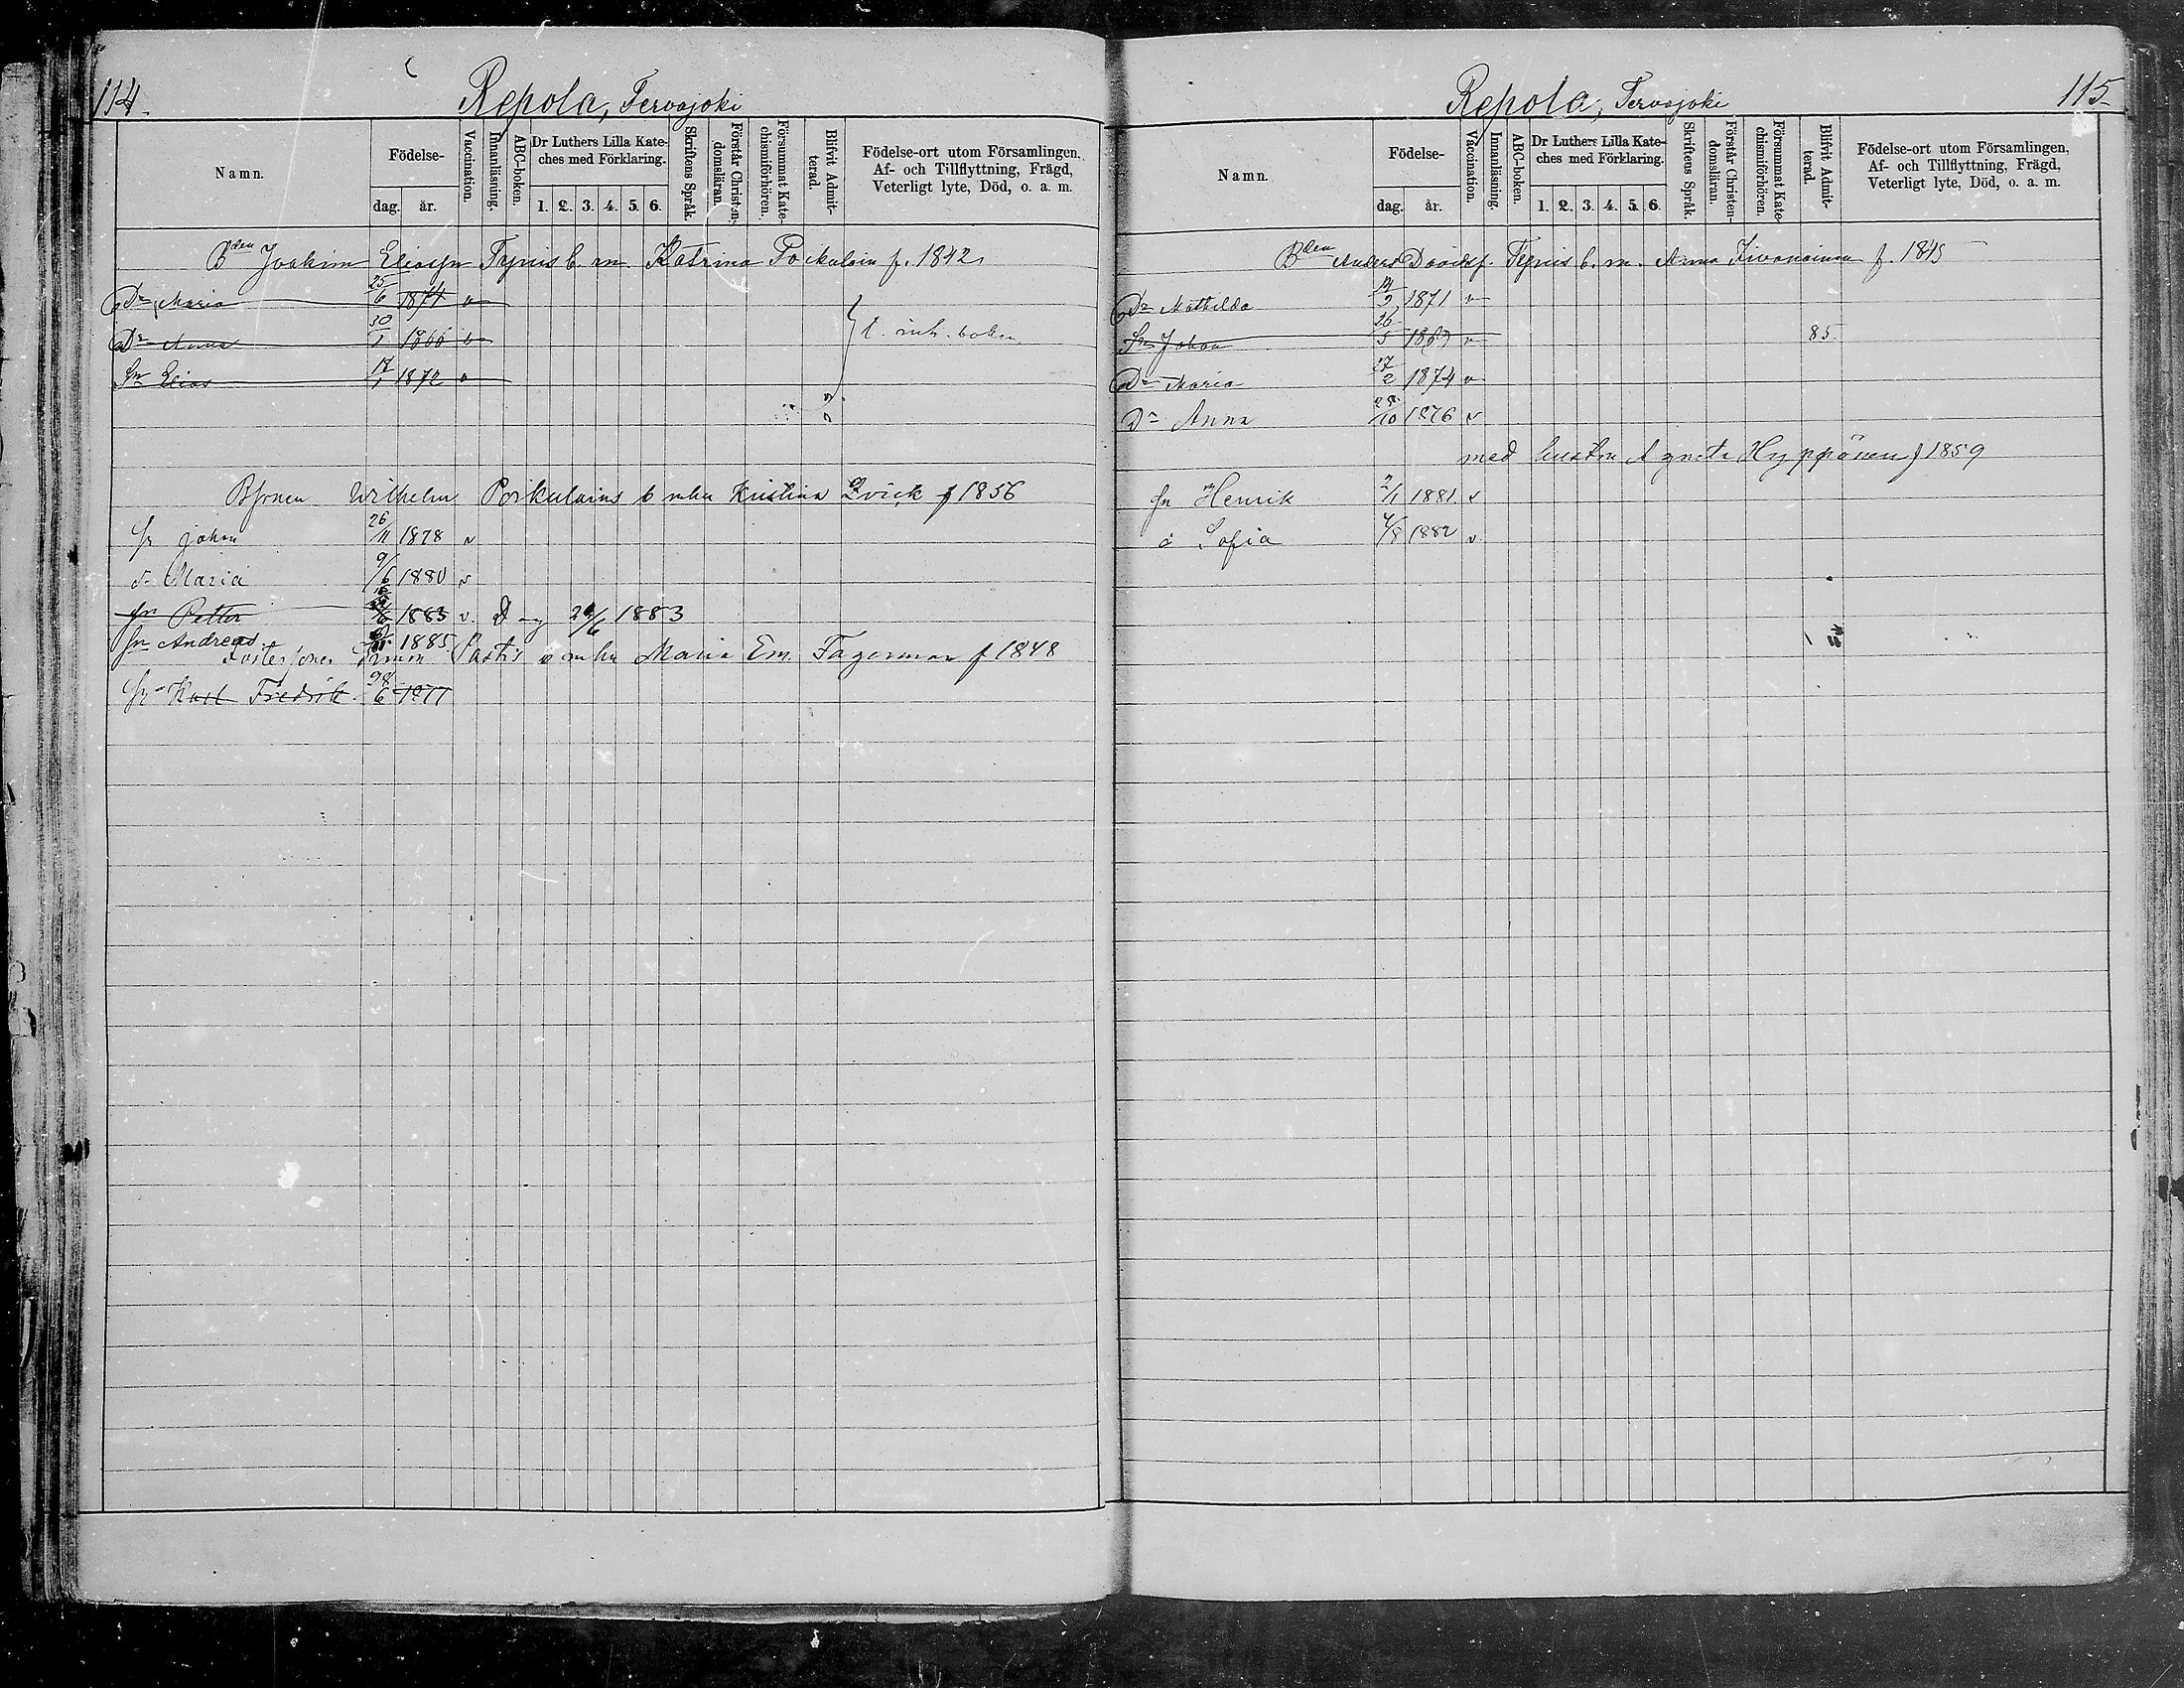 114.
Repola, Tervajoki
Namn.
Födelse-
dag. år.
Vaccination.
Innanläsning.
ABC-boken.
Dr Luthers Lilla Kate-
ches med Förklaring.
1. 2. 3. 4. 5. 6.
Skriftens Språk.
Förstår Christen-
domsläran.
Försummat Kate-
chismiförhören.
Blifvit Admit-
terad.
Födelse-ort utom Församlingen,
Af- och Tillflyttning, Frägd,
Veterligt lyte, Död, o. a. m.
Bden Joakim Eliasfn b. m. Katrina f. 1842
Dr Maria 25/6 1874 v
Dr Anna 30/1 1866 v
Sn Elias 17/1 1872 v
Wilhelm b mhu Kristina f 1856
fn Johan 26/11 1878 v
dr Maria 9/6 1880 v
fn Petter 1883 v. 1883
fn Andreas 1885
b mhu Maria Em. Fagerman f 1848
fn Karl Fredrik 28/6 1877
115
Repola, Tervajoki
Namn.
Födelse-
dag. år.
Vaccination.
Innanläsning.
ABC-boken.
Dr Luthers Lilla Kate-
ches med Förklaring.
1. 2. 3. 4. 5. 6.
Skriftens Språk.
Förstår Christen-
domsläran.
Försummat Kate-
chismiförhören.
Blifvit Admit-
terad.
Födelse-ort utom Församlingen,
Af- och Tillflyttning, Frägd,
Veterligt lyte, Död, o. a. m.
Bden Anders Davidsf. b. m. Anna f. 1845
Dr Mathilda 14/9 1871 v
Sn Johan 26/5 1869 v 85.
Dr Maria 27/2 1874 v
Dr Anna 28/10 1876 v
med hustru Agneta Hyppönen f 1859
fn Henrik 2/1 1881 v
d Sofia 4/8 1882 v